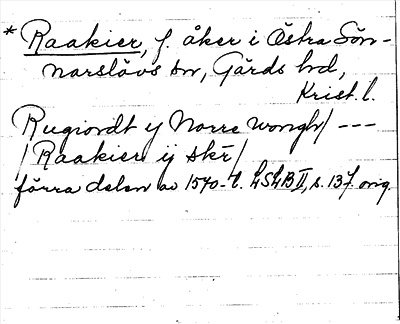 * Raakier, f. åker i Östra Sön-
narslövs sn, Gärds hd,
Krist. l.
Rugiordt ij Norre wongh/ ---
/Raakier ij skr̄/
förra delen av 1540-t. LSLB II, s. 137. orig.